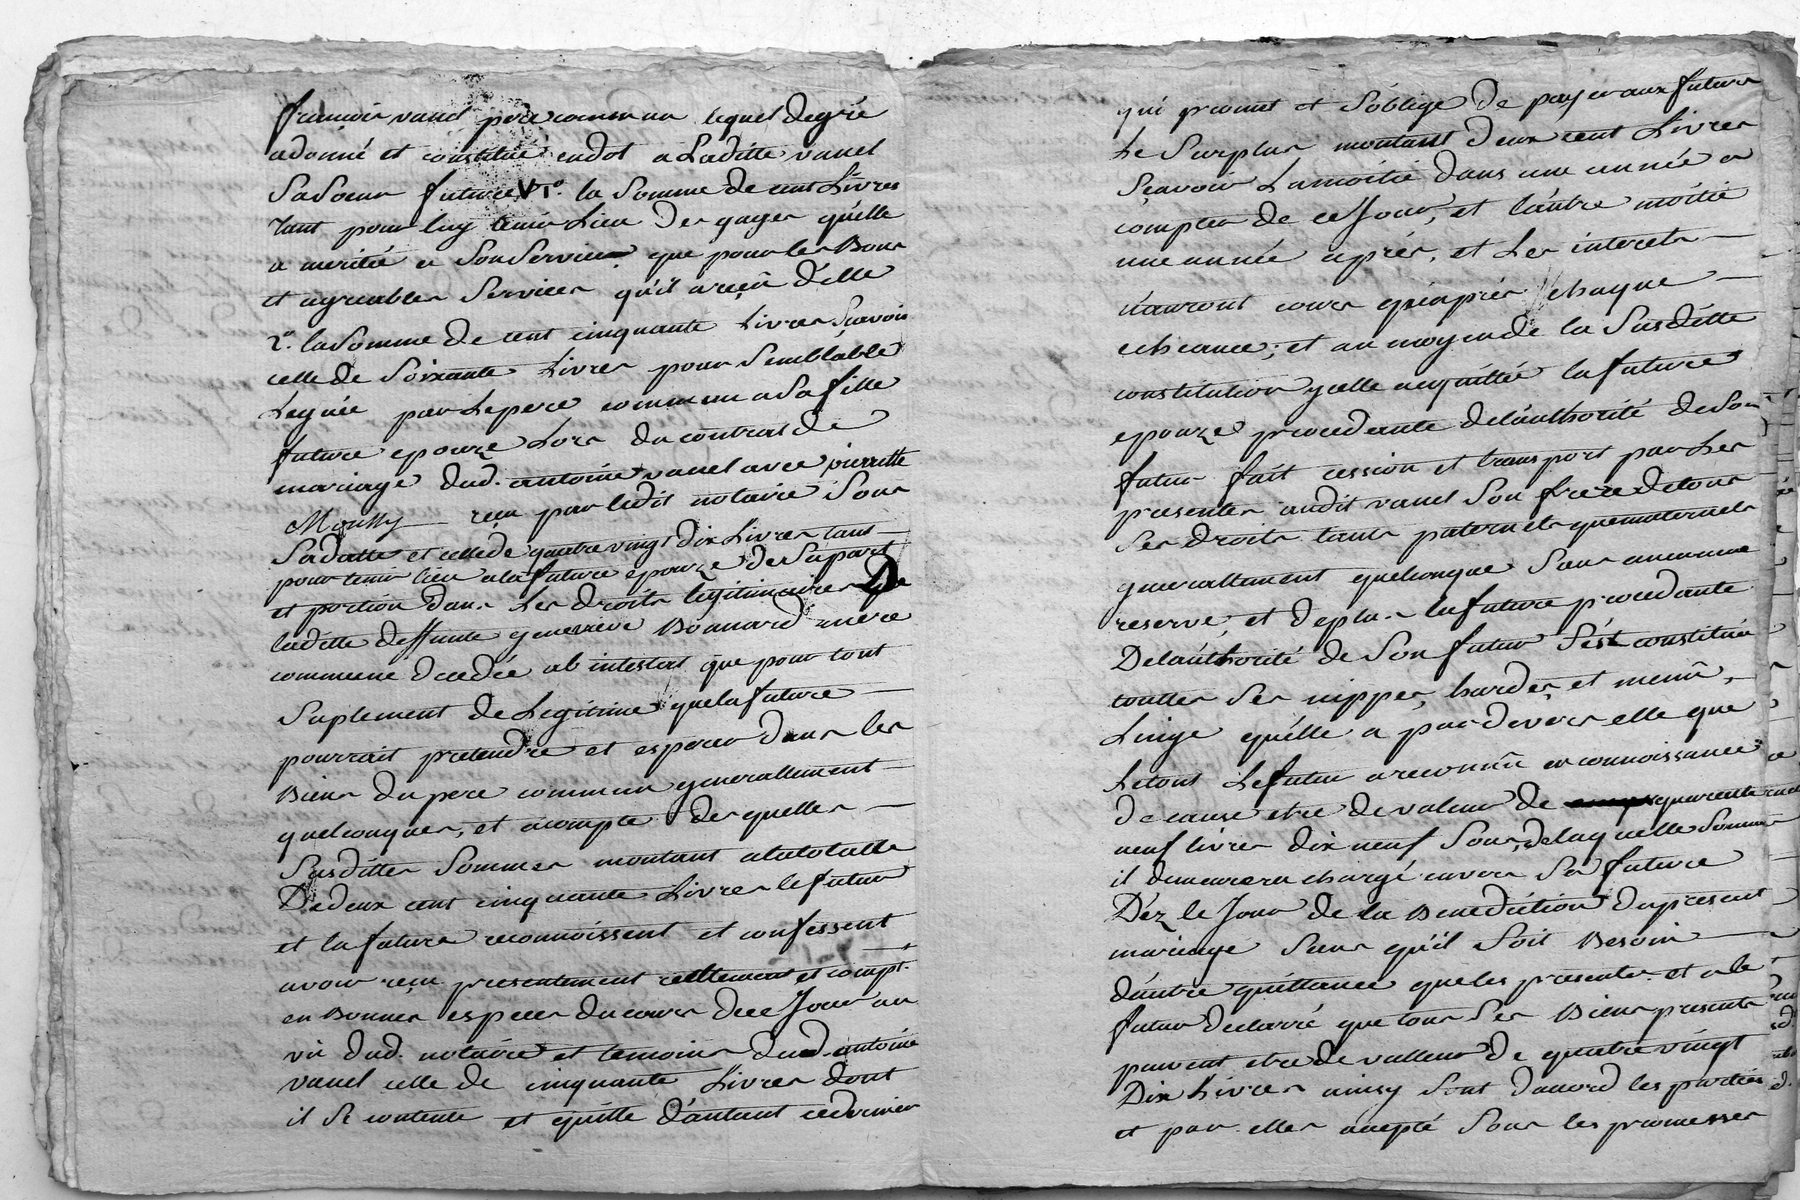 françois vanel pere commun lequel degré
adonné et constitué endot a Laditte vanel
Sa Soeur future 1°. la Somme de cent Livres
tant pour luy tenir Lieu Des gages qu'elle
a merité a Son Service que pour les Bons
et agreables Services qu'il a reçû d'elle
2°. la Somme de cent cinquante Livres Sçavoir
celle de Soixante Livres pour Semblable
Leguée par Le pere commun a Sa fille
future epouze Lors du contrat de
mariage dud. antoine vanel avec pierrette
Moussy reçu par ledit notaire Sous
Sa datte et celle de quatre vingt dix Livres tant
pour tenir lieu a la future epouze de Sa part
et portion dans Les droits legitimaires De
laditte deffunte genevieve Bonnard mere
commune decedée ab intestat que pour tout
Suplement de Legitime que la future
pourrait pretendre et esperer dans les
Biens du pere commun generallement
quelconques, et acompte des quelles
Susdittes Sommes montant a la totalle
De deux cent cinquante Livres le futur
et la future reconnoissent et confessent
avoir reçu presentement reellement et compt.
en Bonnes especes du cours de ce Jour au
vû dud. notaire et temoins dud. antoine
vanel celle de cinquante Livres dont
il Se contente et quitte d'autant ce dernier
qui promet et S'oblige de payer aux futurs
Le Surplus montant deux cent Livres
Sçavoir La moitié dans une année a
compter de ce Jour, et l'autre moitié
une année aprés, et Les interets
n'auront cours qu'aprés chaque
echeance; et au moyen de la Susditte
constitution ycelle acquittée la future
epouze procedante de l'authorité de Son
futur fait cession et transport par Les
presentes audit vanel Son frere de tous
Ses droits tants paternels que maternels
generallement quelconque Sans aucunne
reserve, et deplus la future procedante
De l'authorité de Son futur S'est constituée
touttes Ses nippes, hardes, et menû
Linge qu'elle a par devers elle que
Le tout Le futur a reconnû en connoissance
de cause etre de valeur de quarente
neuf livres dix neuf Sous, de laquelle Somme
il demeurera chargé envers Sa future
Déz le Jour de la Benediction du present
mariage Sans qu'il Soit Besoin
d'autre quittance que les presentes. et a le
futur declarré que tous Ses Biens presents
peuvent etre de valleur de quatre vingt
Dix Livres ainsy Sont d'accord les parties
et par elles accepté Sous les promesses